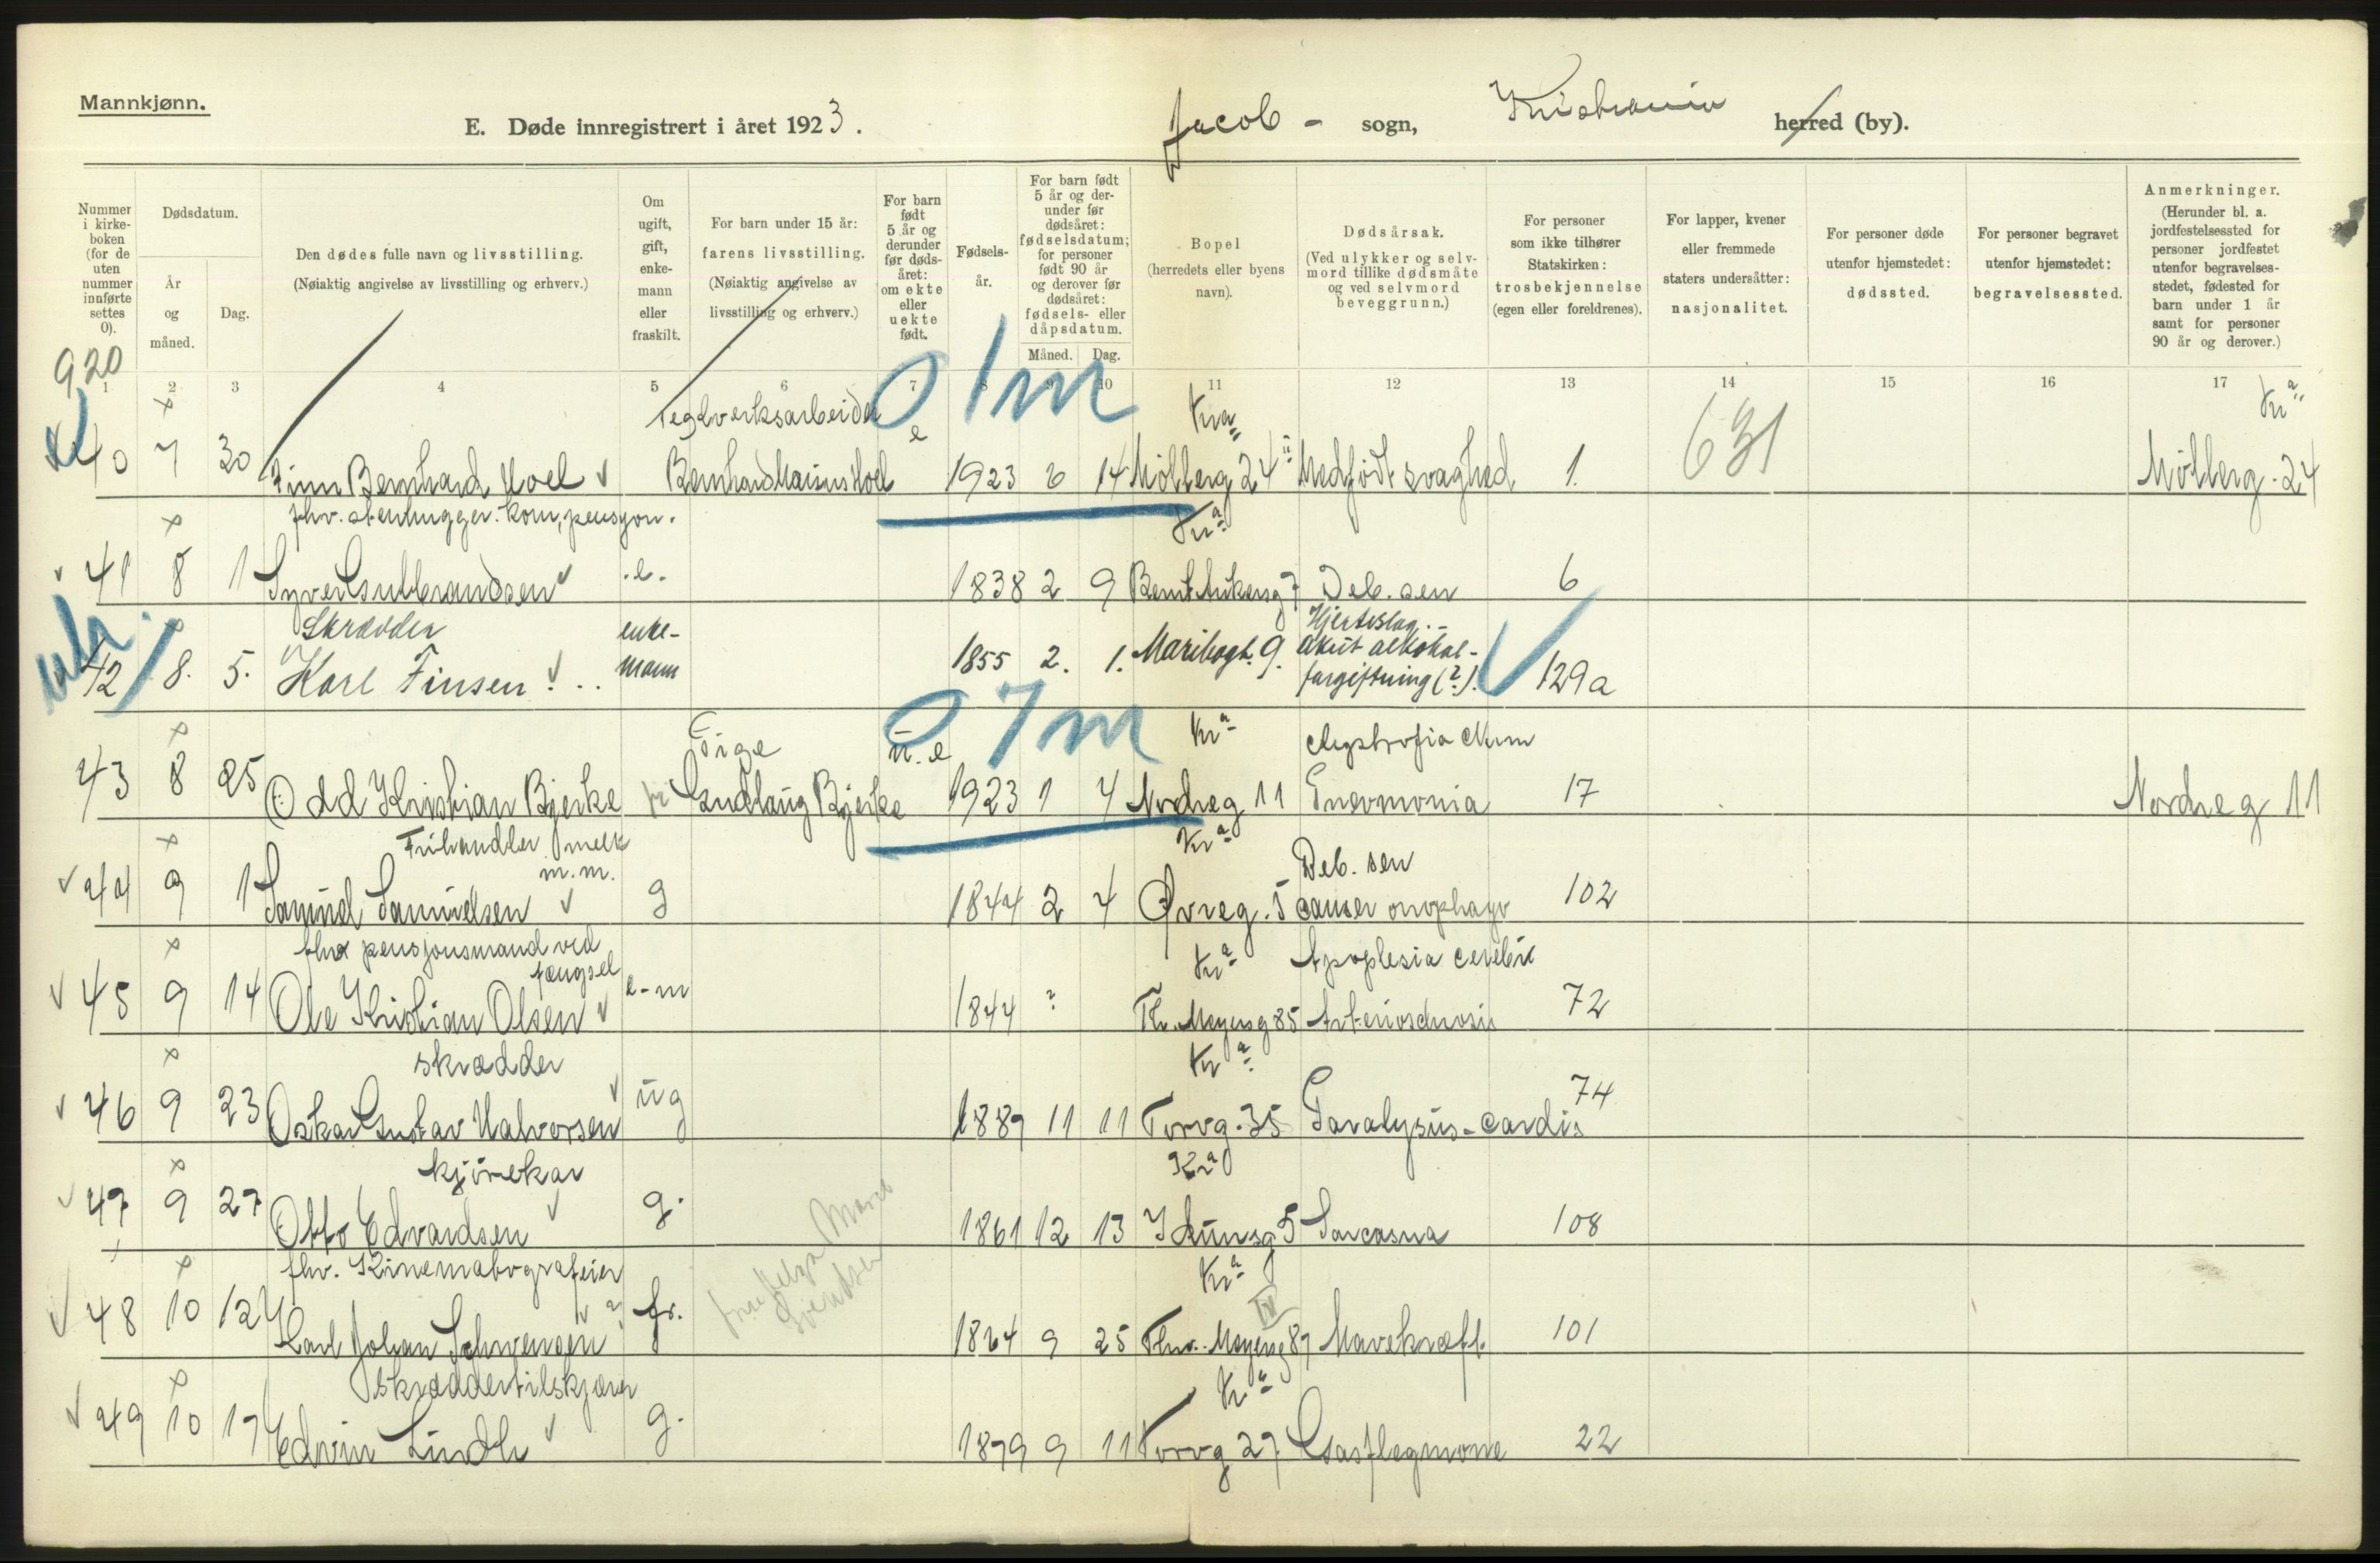 Mannkjønn.
E. Døde innregistrert i året 1923.
Jacob - sogn, Kristiania herred (by).
Nummer i kirke-boken (for de uten nummer innførte settes 0).
Dødsdatum.
År og måned.
Dag.
Den dødes fulle navn og livsstilling.
(Nøiaktig angivelse av livsstilling og erhverv.)
Om ugift, gift, enke-mann eller fraskilt.
For barn under 15 år:
farens livsstilling.
(Nøiaktig angivelse av livsstilling og erhverv.)
For barn født 5 år og derunder før døds-året: om ekte eller uekte født.
Fødsels-år.
For barn født 5 år og der-under før dødsåret: fødselsdatum; for personer født 90 år og derover før dødsåret: fødsels- eller dåpsdatum.
Måned. Dag.
Bopel
(herredets eller byens navn).
Dødsårsak.
(Ved ulykker og selv-mord tillike dødsmåte og ved selvmord beveggrunn.)
For personer som ikke tilhører Statskirken: trosbekjennelse (egen eller foreldrenes).
For lapper, kvener eller fremmede staters undersåtter: nasjonalitet.
For personer døde utenfor hjemstedet: dødssted.
For personer begravet utenfor hjemstedet: begravelsessted.
Anmerkninger.
(Herunder bl. a. jordfestelsessted for personer jordfestet utenfor begravelses-stedet, fødested for barn under 1 år samt for personer 90 år og derover.)
920
1 2 3 4 5 6 7 8 9 10 11 12 13 14 15 16 17
0 1m
Teglverksarbeider e Kra Kra
40 7 30 Finn Bernhard Hoel Bernhard Marius Hoel 1923 6 14 Møllerg 24 Medfødt svaghed 1 631 Møllerg. 24
fhv. stenhugger. kom, pensjon. Kra
41 8 1 Syver Gulbrandsen .e. 1838 2 9 Bernt Ankersg 7 Deb. sen 6
Skrædder enke- Hjerteslag.
42 8. 5. Karl Finsen mann 1855 2. 1. Maribogt. 9. akut alkohol-forgiftning (?). 129a
0 7m
Pige u.e Kra
43 8 25 Odd Kristian Bjerke Gudlaug Bjerke 1923 1 4 Nordreg 11 Pneumonia 17 Nordreg 11
Frihandler melk m.m. Kra Deb. sen
44 9 1 Samuel Samuelsen g 1844 2 4 Øvreg. 5 cancer 102
fhv pensjonsmand ved fængsel Kra Apoplexia cerebri
45 9 14 Ole Kristian Olsen e-m 1844 ? Th. Meyersg 85 72
skrædder Kra
46 9 23 Oskar Gustav Halvorsen ug 1889 11 11 Torvg. 35 Paralysis-cardis 74
kjørekar Kra
47 9 27 Otto Edvardsen g. 1861 12 13 5 108
fhv. Kinematografeier Kra
48 10 12 Karl Johan fr. 1864 9 25 Thv. Meyersg 87 IV Mavekræft. 101
Skræddertilskjærer Kra
49 10 17 Edvin Lindh g. 1879 9 11 Torvg 27 Gasflegmone 22